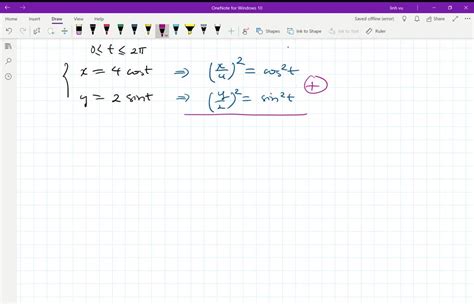 OneNote for Windows 10
linh vu
Home Insert Draw View Help
Saved offline (error)
Shapes Ink to Shape Ink to Text Math Ruler
0 ≤ t ≤ 2π
{ x = 4 cost ⇒ (x/4)² = cos²t
y = 2 sint ⇒ (y/2)² = sin²t +